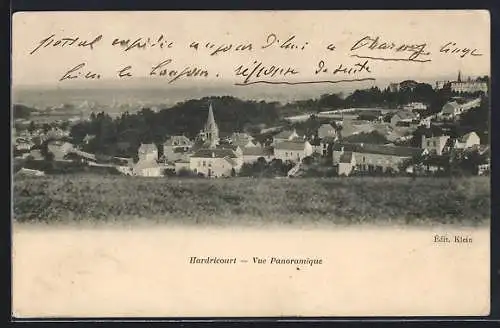 postal expédié aujour d'hui a Charnay linge
bien le
réponse de suite
Édit. Klein
Hardricourt — Vue Panoramique